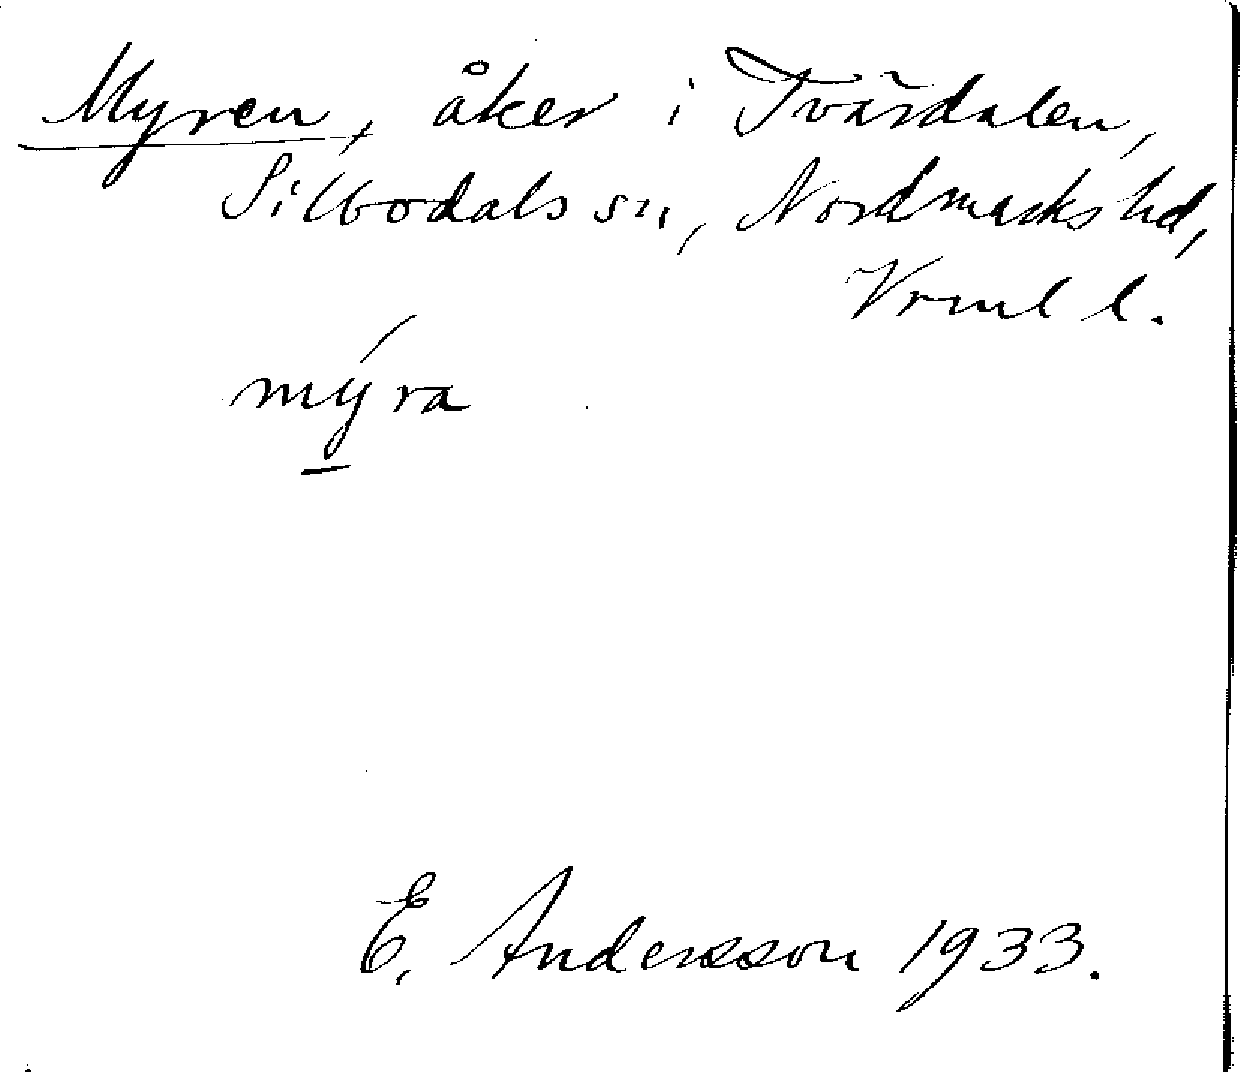 Myren, åker i Tvärdalen,
Silbodals sn, Nordmarks hd,
Vrml l.
mýra
E. Andersson 1933.